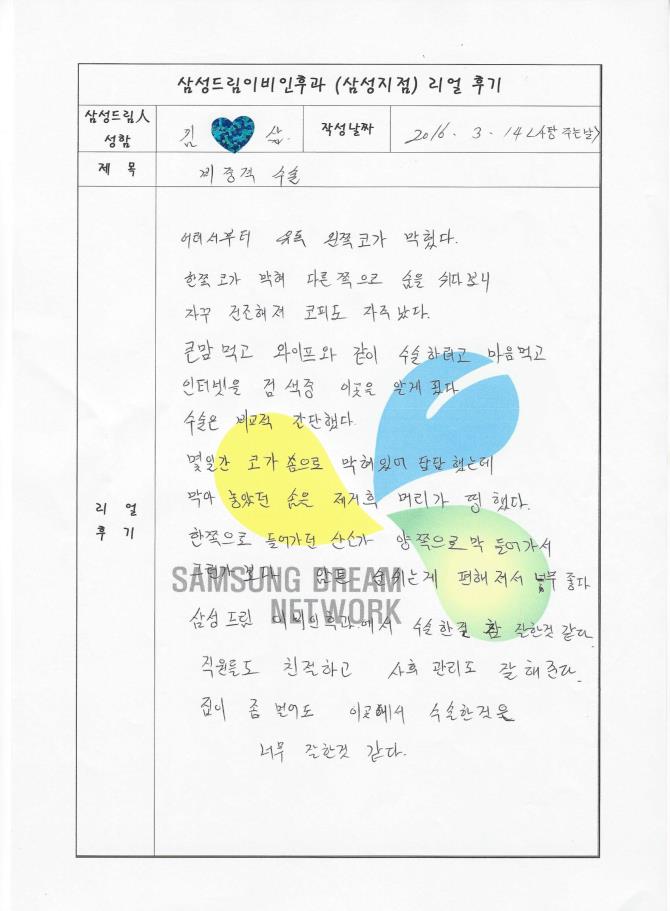 삼성드림이비인후과 (삼성지점) 리얼 후기
삼성드림人
성함
김 삼.
작성날짜
2016. 3. 14 <사탕 주는날>
제 목
비중격 수술
리 얼
후 기
어려서부터 유독 왼쪽코가 막혔다.
한쪽 코가 막혀 다른 쪽으로 숨을 쉬다보니
자꾸 건조해져 코피도 자주 났다.
큰맘 먹고 와이프와 같이 수술하려고 마음먹고
인터넷을 검색중 이곳을 알게 됐다
수술은 비교적 간단했다.
몇일간 코가 솜으로 막혀있어 답답했는데
막아 놓았던 솜은 제거희 머리가 띵했다.
한쪽으로 들어가던 산소가 양쪽으로 막 들어가서
그런가보다 암튼 숨쉬는게 편해져서 너무 좋다
SAMSUNG DREAM
NETWORK
삼성드림 이비인학과에서 수술한걸 참 잘한것 같다.
직원들도 친절하고 사후 관리도 잘해준다.
집이 좀 멀어도 이곳에서 수술한것은
너무 잘한것 같다.